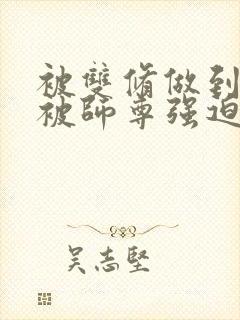 被雙脩做到
被師尊强迫
吴志堅